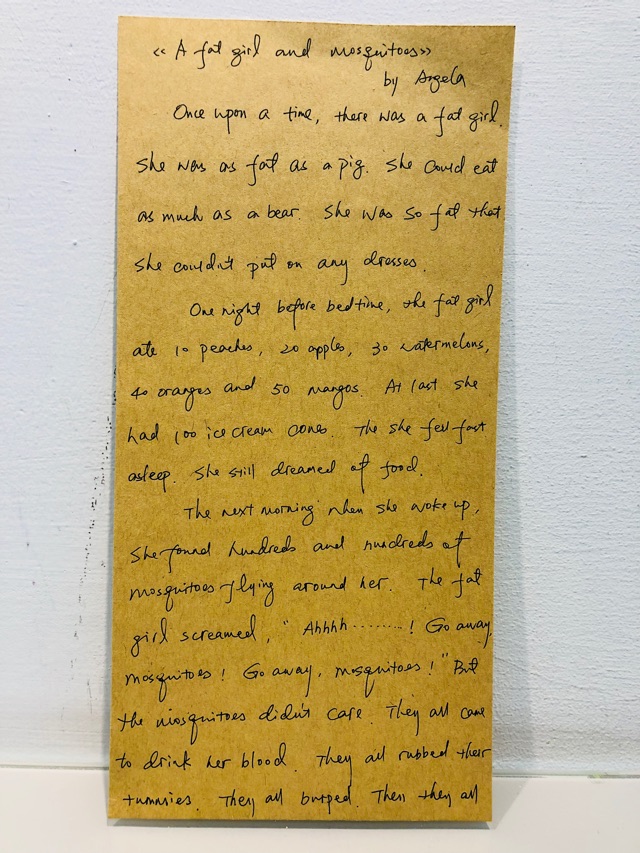 << A fat girl and mosquitoes>>
by Angela
Once upon a time, there was a fat girl.
She was as fat as a pig. She could eat
as much as a bear. She was so fat that
she couldn't put on any dresses.
One night before bedtime, the fat girl
ate 10 peaches, 20 apples, 30 watermelons,
40 oranges and 50 mangos. At last she
had 100 ice cream cones. The she fell fast
asleep. She still dreamed of food.
The next morning when she woke up,
she found hundreds and hundreds of
mosquitoes flying around her. The fat
girl screamed, "Ahhhh........! Go away,
mosquitoes! Go away, mosquitoes!" But
the mosquitoes didn't care. They all came
to drink her blood. They all rubbed their
tummies. They all burped. Then they all